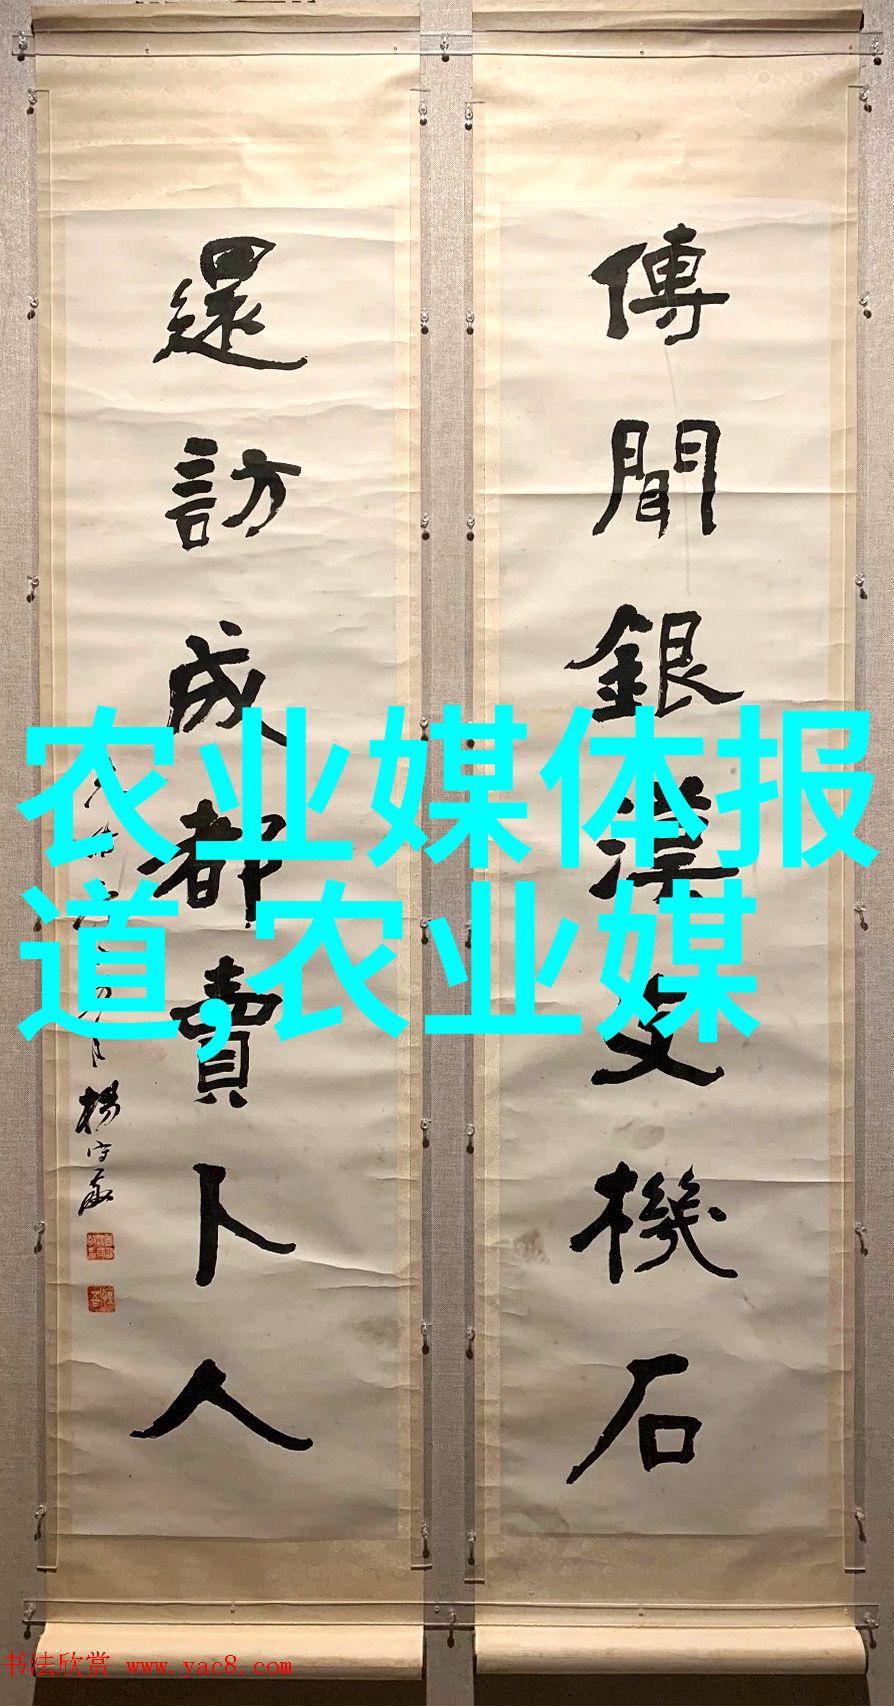 傳聞銀漢支機石
還訪成都賣卜人
楊守敬
农业媒体报
道,农业媒
书法欣赏 www.yac8.com